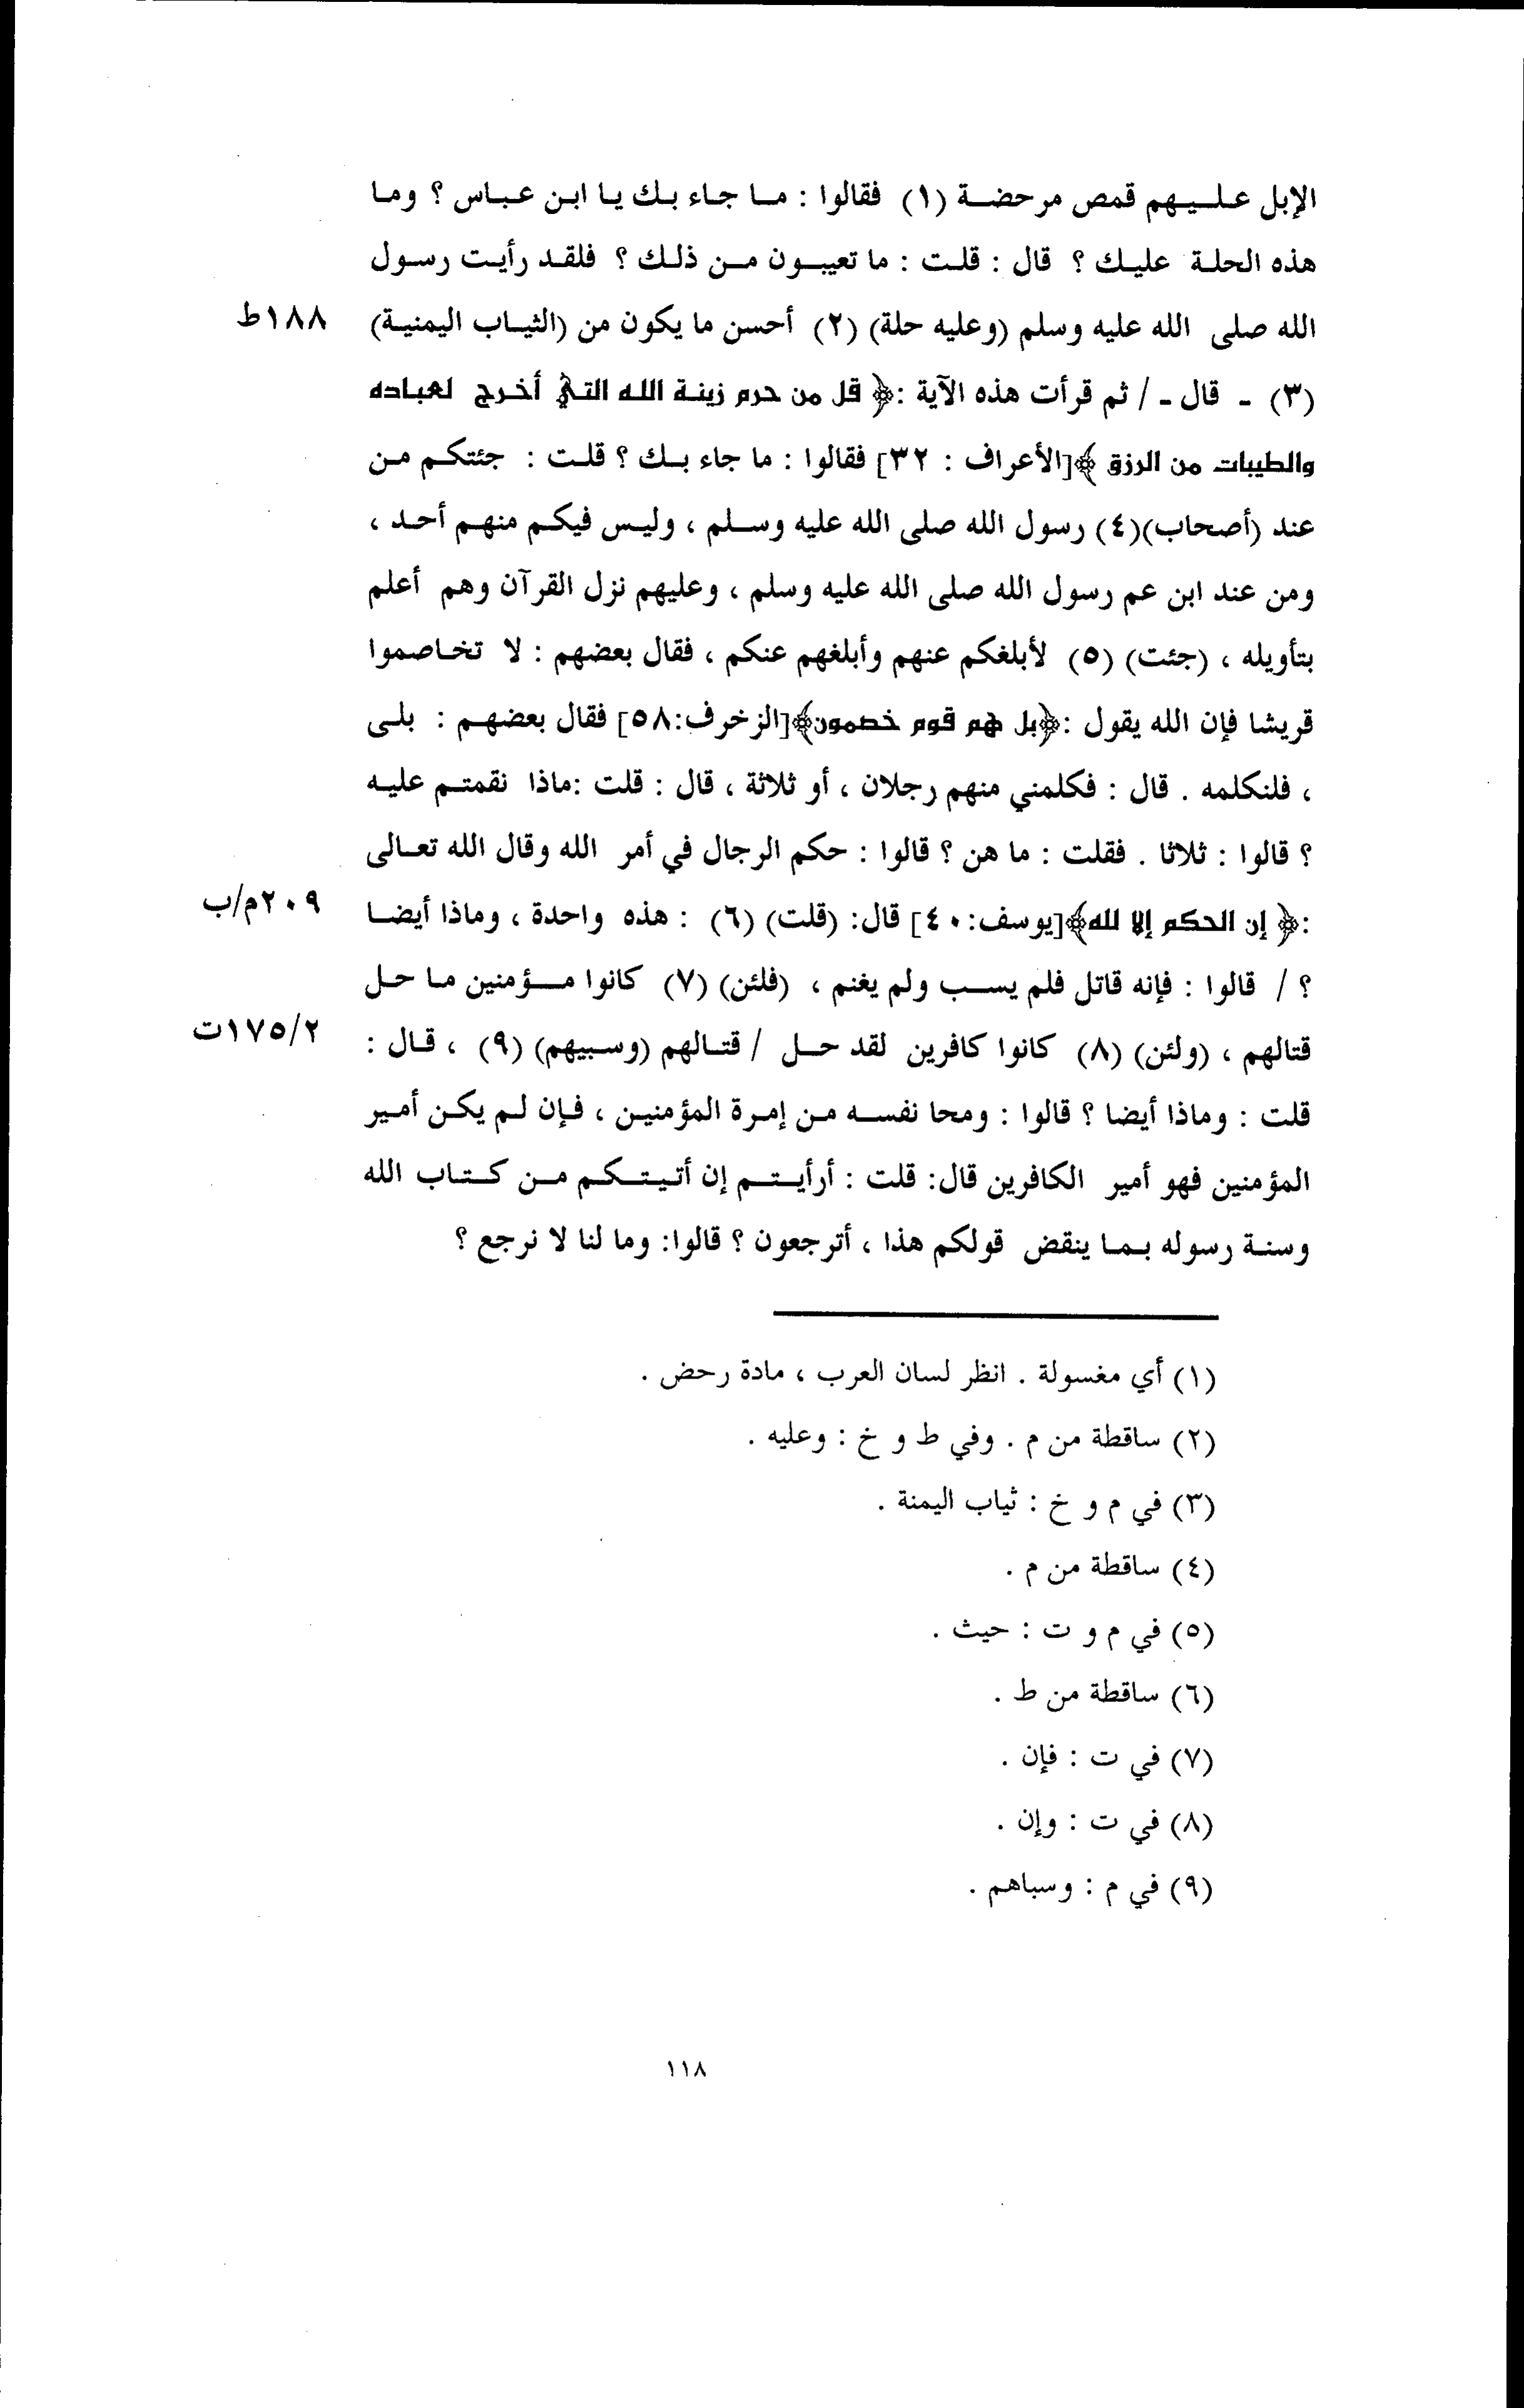 الإبل عليهم قمص مرحضة (١) فقالوا : ما جاء بك يا ابن عباس ؟ وما
هذه الحلة عليك ؟ قال : قلت : ما تعيبون من ذلك ؟ فلقد رأيت رسول
الله صلى الله عليه وسلم (وعليه حلة) (٢) أحسن ما يكون من (الثياب اليمنية)
١٨٨ط
(٣) - قال - / ثم قرأت هذه الآية :﴿ قل من حرم زينة الله التي أخرج لعباده
والطيبات من الرزق ﴾[الأعراف : ٣٢] فقالوا : ما جاء بك ؟ قلت : جئتكم من
عند (أصحاب)(٤) رسول الله صلى الله عليه وسلم ، وليس فيكم منهم أحد ،
ومن عند ابن عم رسول الله صلى الله عليه وسلم ، وعليهم نزل القرآن وهم أعلم
بتأويله ، (جئت) (٥) لأبلغكم عنهم وأبلغهم عنكم ، فقال بعضهم : لا تخاصموا
قريشا فإن الله يقول :﴿بل هم قوم خصمون﴾[الزخرف:٥٨] فقال بعضهم : بلى
، فلنكلمه . قال : فكلمني منهم رجلان ، أو ثلاثة ، قال : قلت :ماذا نقمتم عليه
؟ قالوا : ثلاثا . فقلت : ما هن ؟ قالوا : حكم الرجال في أمر الله وقال الله تعالى
:﴿ إن الحكم إلا لله﴾[يوسف:٤٠] قال: (قلت) (٦) : هذه واحدة ، وماذا أيضا
٢٠٩م/ب
؟ / قالوا : فإنه قاتل فلم يسب ولم يغنم ، (فلئن) (٧) كانوا مؤمنين ما حل
قتالهم ، (ولئن) (٨) كانوا كافرين لقد حل / قتالهم (وسبيهم) (٩) ، قال :
١٧٥/٢ت
قلت : وماذا أيضا ؟ قالوا : ومحا نفسه من إمرة المؤمنين ، فإن لم يكن أمير
المؤمنين فهو أمير الكافرين قال: قلت : أرأيتم إن أتيتكم من كتاب الله
وسنة رسوله بما ينقض قولكم هذا ، أترجعون ؟ قالوا: وما لنا لا نرجع ؟
(١) أي مغسولة . انظر لسان العرب ، مادة رحض .
(٢) ساقطة من م . وفي ط و خ : وعليه .
(٣) في م و خ : ثياب اليمنة .
(٤) ساقطة من م .
(٥) في م و ت : حيث .
(٦) ساقطة من ط .
(٧) في ت : فإن .
(٨) في ت : وإن .
(٩) في م : وسباهم .
١١٨